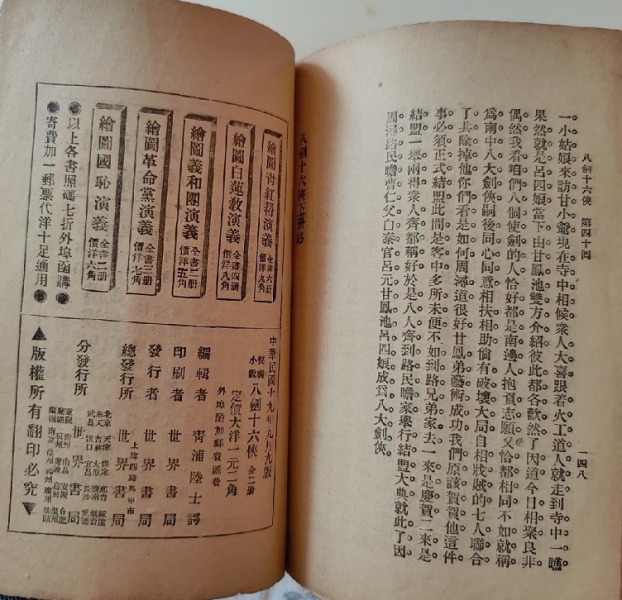 八劍十六俠 第四十回
一四八
一小姑娘來訪甘小爺現在寺中相候衆人大喜跟着火工道人就走到寺中一瞧
果然就是呂四娘當下由甘鳳池雙方介紹彼此都各歡然了因道今日相聚良非
偶然我看咱們八個使劍的人恰好都是南邊人抱負志願又恰都相同不如就稱
爲南中八大劍俠嗣後同心同意相扶相助倘有破壞大局自相戕賊的七人聯合
了共除掉他你們看是如何周潯道很好甘鳳弟藝術成功我們原該賀賀他這件
事必須正式結盟此間是客中多所未便不如到路兄弟家去一來是慶賀二來是
結盟一舉兩得衆人齊都稱好於是八人齊到路民瞻家舉行結盟大典就此了因
周潯路民瞻曹仁父白泰官呂元甘鳳池呂四娘成爲八大劍俠
八劍十六俠
繪圖青紅幫演義 全書六冊 價洋九角
繪圖白蓮教演義 全書四冊 價洋八角
繪圖義和團演義 全書二冊 價洋五角
繪圖革命黨演義 全書三冊 價洋七角
繪圖國恥演義 全書二冊 價洋六角
●以上各書照碼七折外埠函購●
●寄費加一郵票代洋十足通用●
中華民國十九年九月九版
小說 八劍十六俠 全二冊
定價大洋一元二角
外埠酌加郵費匯費
編輯者 靑浦陸士諤
印刷者 世界書局
發行者 世界書局
總發行所 上海四路 世界書局
分發行所 世界書局
▲版權所有翻印必究▼